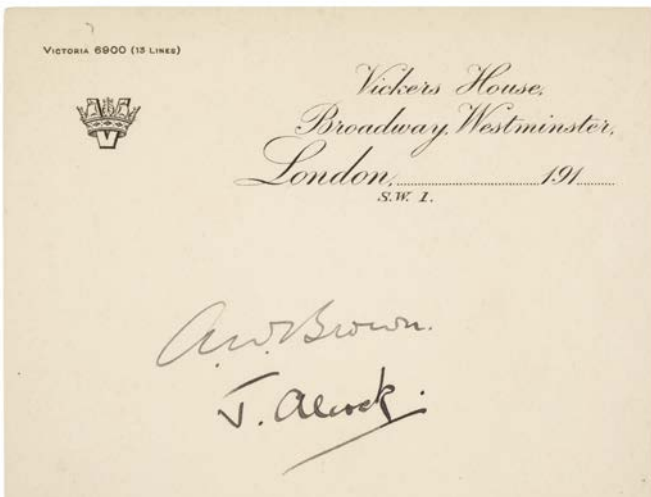 VICTORIA 6900 (13 LINES)
V
Vickers House,
Broadway, Westminster,
London, ........................ 191......
S.W. 1.
A.W. Brown.
J. Alcock.